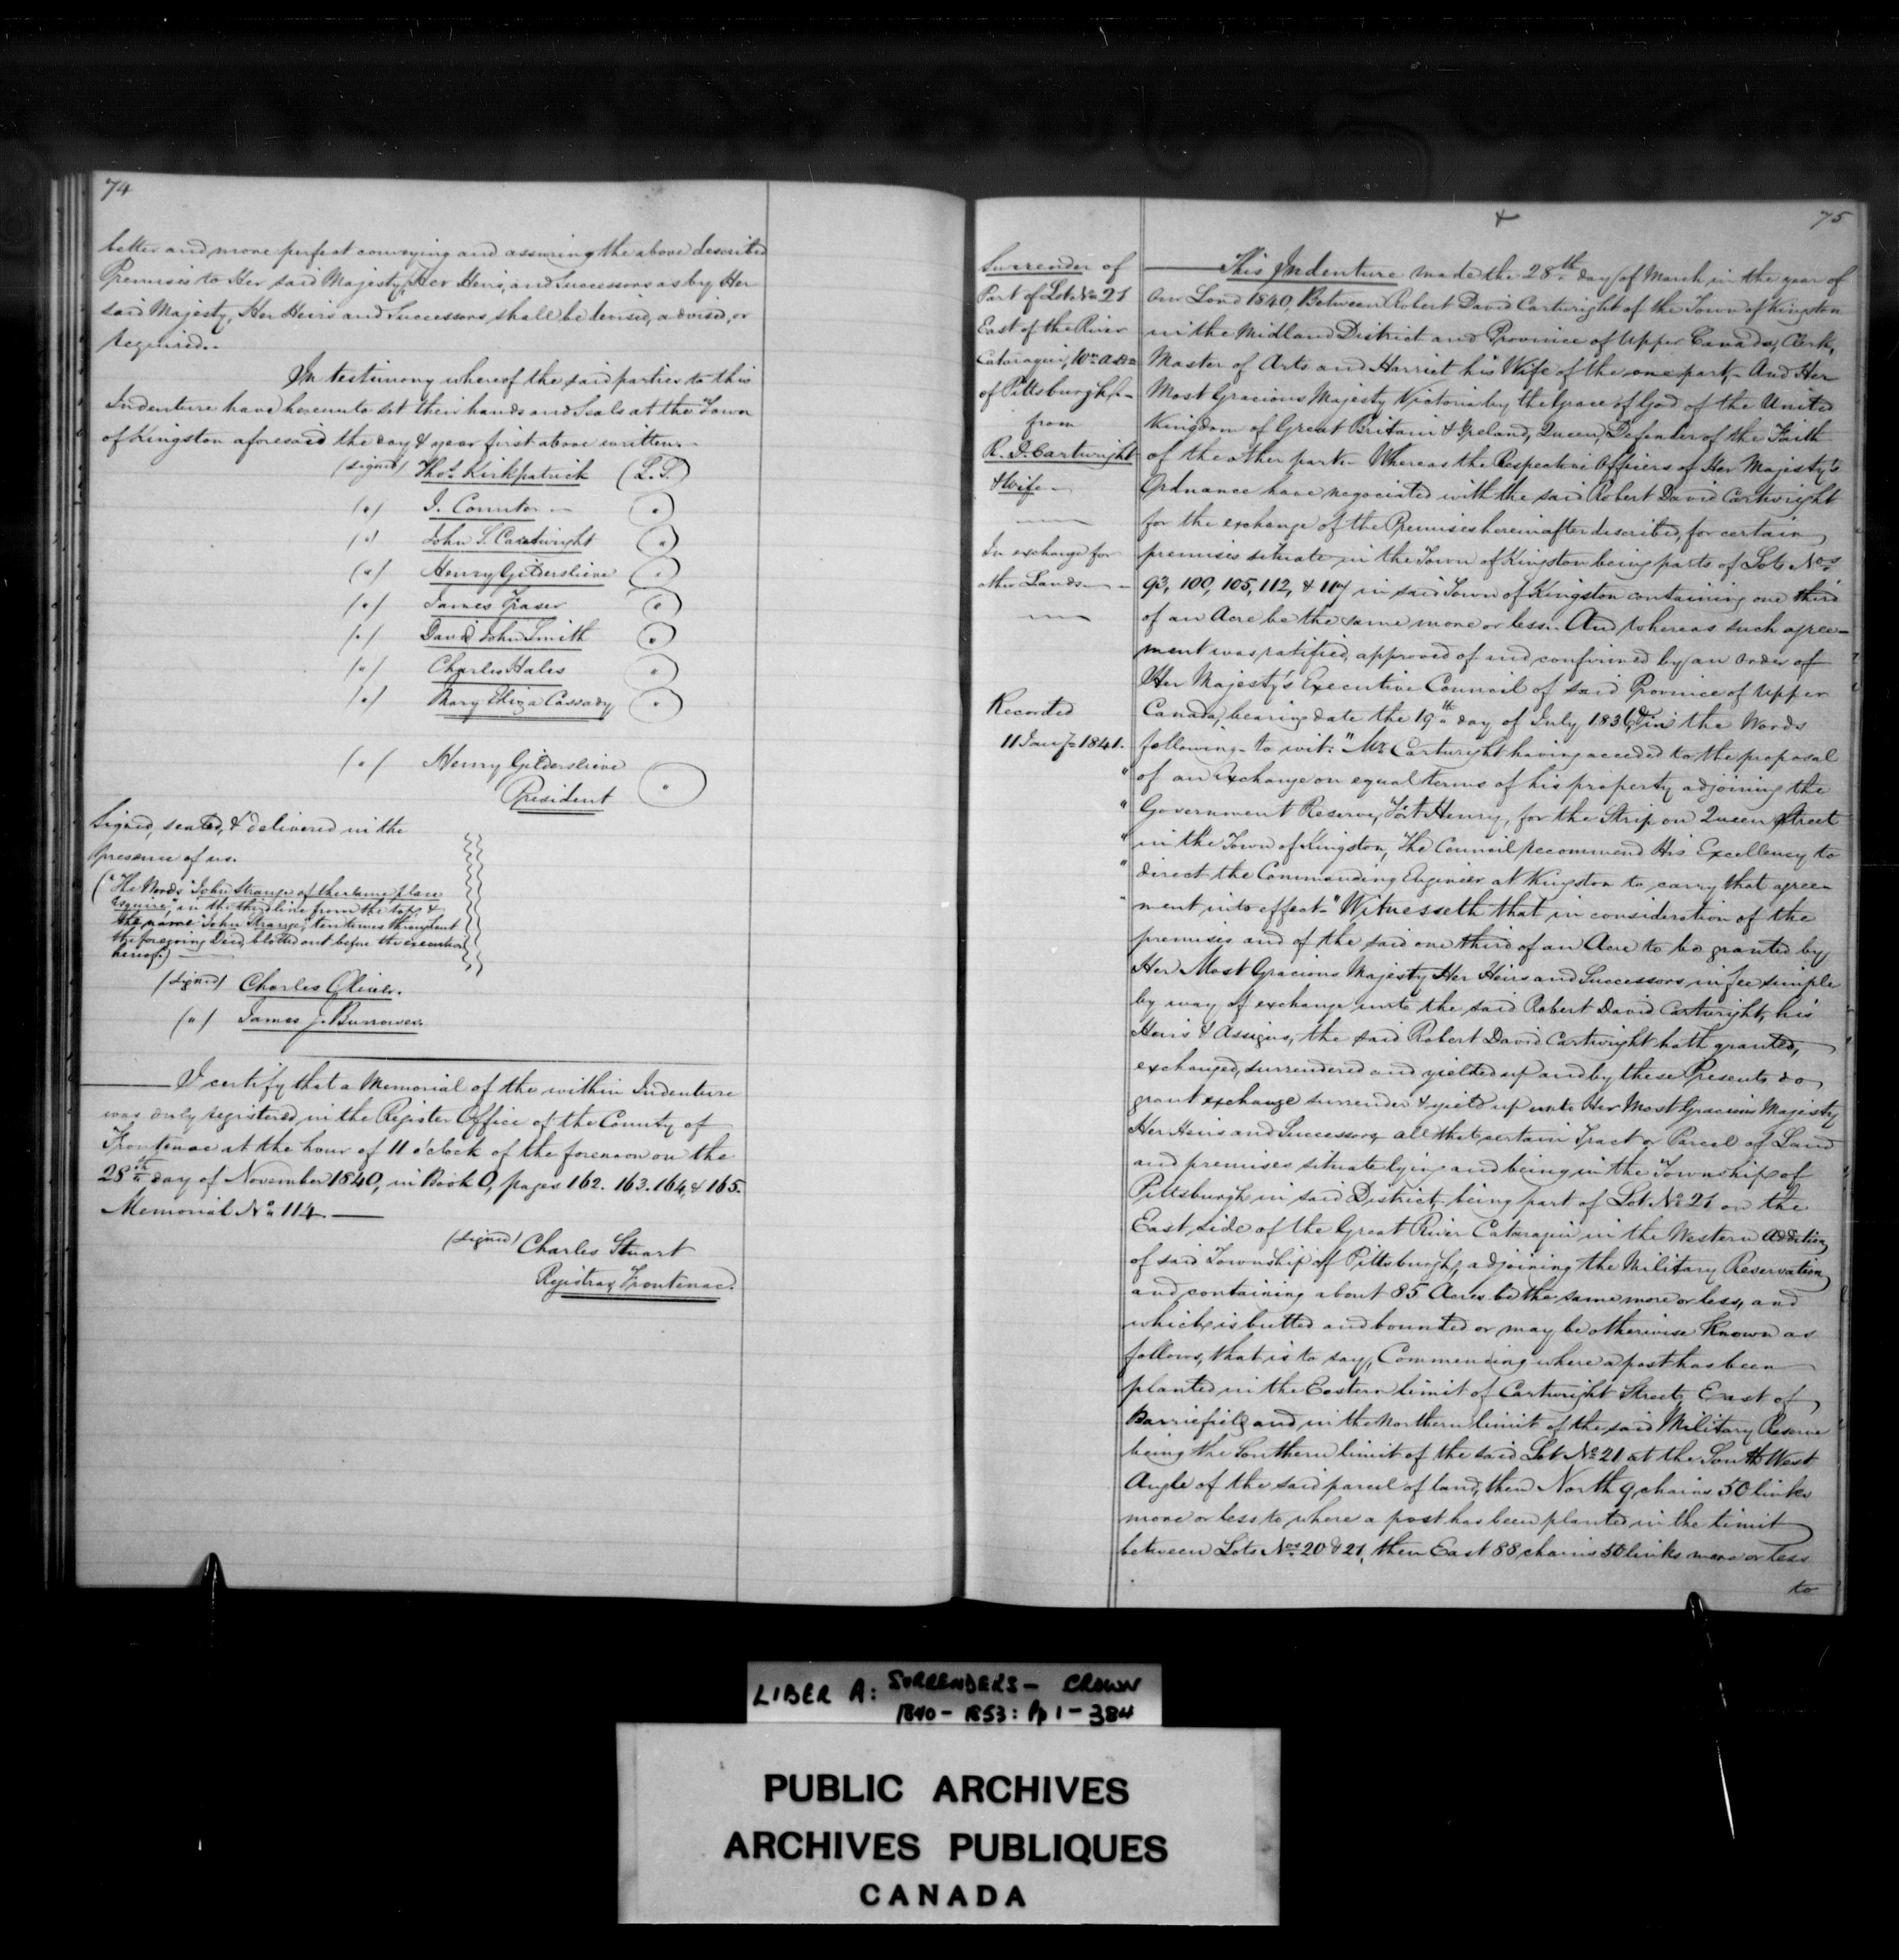 74
better and more perfect conveying and assuring the above described
Premises to Her said Majesty, Her Heirs, and Successors as by Her
said Majesty, Her Heirs and Successors, shall be devised, advised, or
required.
In testimony whereof the said parties to this
Indenture have hereunto set their hands and Seals at the Town
of Kingston aforesaid the day & year first above written.
(signed) Thos. Kirkpatrick (L.S.)
(") J. Counter
(") John S. Cartwright
(") Henry Gildersleive
(") James Fraser
(") David John Smith
(") Charles Hales
(") Mary Eliza Cassady
(") Henry Gildersleive
President
Signed, sealed, & delivered in the
presence of us.
("The Words "John Strange of the same place
Esquire," in the third line from the top, &
the name "John Strange," ten times throughout
the foregoing Deed, blotted out before the execution
hereof.)
(signed) Charles Oliver.
(") James J. Burrowes.
I certify that a Memorial of the within Indenture
was duly registered in the Register Office of the County of
Frontenac at the hour of 11 o'clock of the forenoon on the
28th day of November 1840, in Book O, pages 162. 163. 164, & 165.
Memorial No. 114.
(signed) Charles Stuart
Registrar, Frontenac.
75
Surrender of
Part of Lot No 21
East of the River
Cataraqui, Wn. Addn
of Pittsburgh
from
R. D. Cartwright
& Wife
In exchange for
other Lands
Recorded
11 Jany 1841.
This Indenture made the 28th day of March in the year of
Our Lord 1840, Between Robert David Cartwright of the Town of Kingston
in the Midland District and Province of Upper Canada, Clerk,
Master of Arts and Harriet his Wife of the one part, And Her
Most Gracious Majesty Victoria by the Grace of God of the United
Kingdom of Great Britain & Ireland, Queen, Defender of the Faith
of the other part. Whereas the Respective Officers of Her Majesty's
Ordnance have negociated with the said Robert David Cartwright
for the exchange of the Premises hereinafter described, for certain
premises situate in the Town of Kingston being parts of Lots Nos.
93, 100, 105, 112, & 117 in said Town of Kingston containing one third
of an Acre be the same more or less. And whereas such agree-
ment was ratified, approved of and confirmed by an order of
Her Majesty's Executive Council of said Province of Upper
Canada, bearing date the 19th day of July 183 in the Words
following to wit. "Mr. Cartwright having acceded to the proposal
" of an Exchange on equal terms of his property adjoining the
" Government Reserve, Fort Henry, for the Strip on Queen Street
" in the Town of Kingston, The Council recommend His Excellency to
" direct the Commanding Engineer at Kingston to carry that agree-
" ment into effect." Witnesseth that in consideration of the
premises and of the said one third of an Acre to be granted by
Her Most Gracious Majesty Her Heirs and Successors in fee simple
by way of exchange unto the said Robert David Cartwright, his
Heirs & Assigns, the said Robert David Cartwright hath granted,
exchanged, surrendered and yielded up and by these Presents do
grant exchange surrender & yield up unto Her Most Gracious Majesty
Her Heirs and Successors all that certain Tract or Parcel of Land
and premises situate lying and being in the Township of
Pittsburgh in said District, being part of Lot No 21 on the
East side of the Great River Cataraqui in the Western Addition
of said Township of Pittsburgh, adjoining the Military Reservation
and containing about 85 Acres be the same more or less, and
which is butted and bounded or may be otherwise known as
follows, that is to say, Commencing where a post has been
planted in the Eastern limit of Cartwright Street, East of
Barriefield and in the Northern limit of the said Military Reserve
being the Southern limit of the said Lot No 21 at the South West
Angle of the said parcel of land, then North 9 chains 50 links
more or less to where a post has been planted in the limit
between Lots Nos. 20 & 21, then East 88 chains 50 links more or less
to
LIBER A: SURRENDERS - CROWN
1840 - 1853: Pp 1 - 384
PUBLIC ARCHIVES
ARCHIVES PUBLIQUES
CANADA